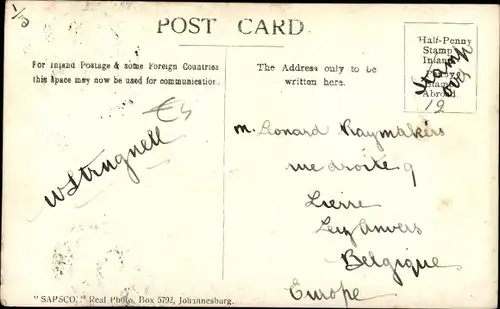 1/10
POST CARD
For Inland Postage & some Foreign Countries
this space may now be used for communication.
The Address only to be
written here.
Half-Penny
Stamp
Inland
Stamp
Abroad.
Stamp
over
12
€4
W Strugnell
M. Leonard Raymakers
rue droite 9
Lierre
Lez Anvers
Belgique
Europe
"SAPSCO" Real Photo, Box 5792, Johannesburg.